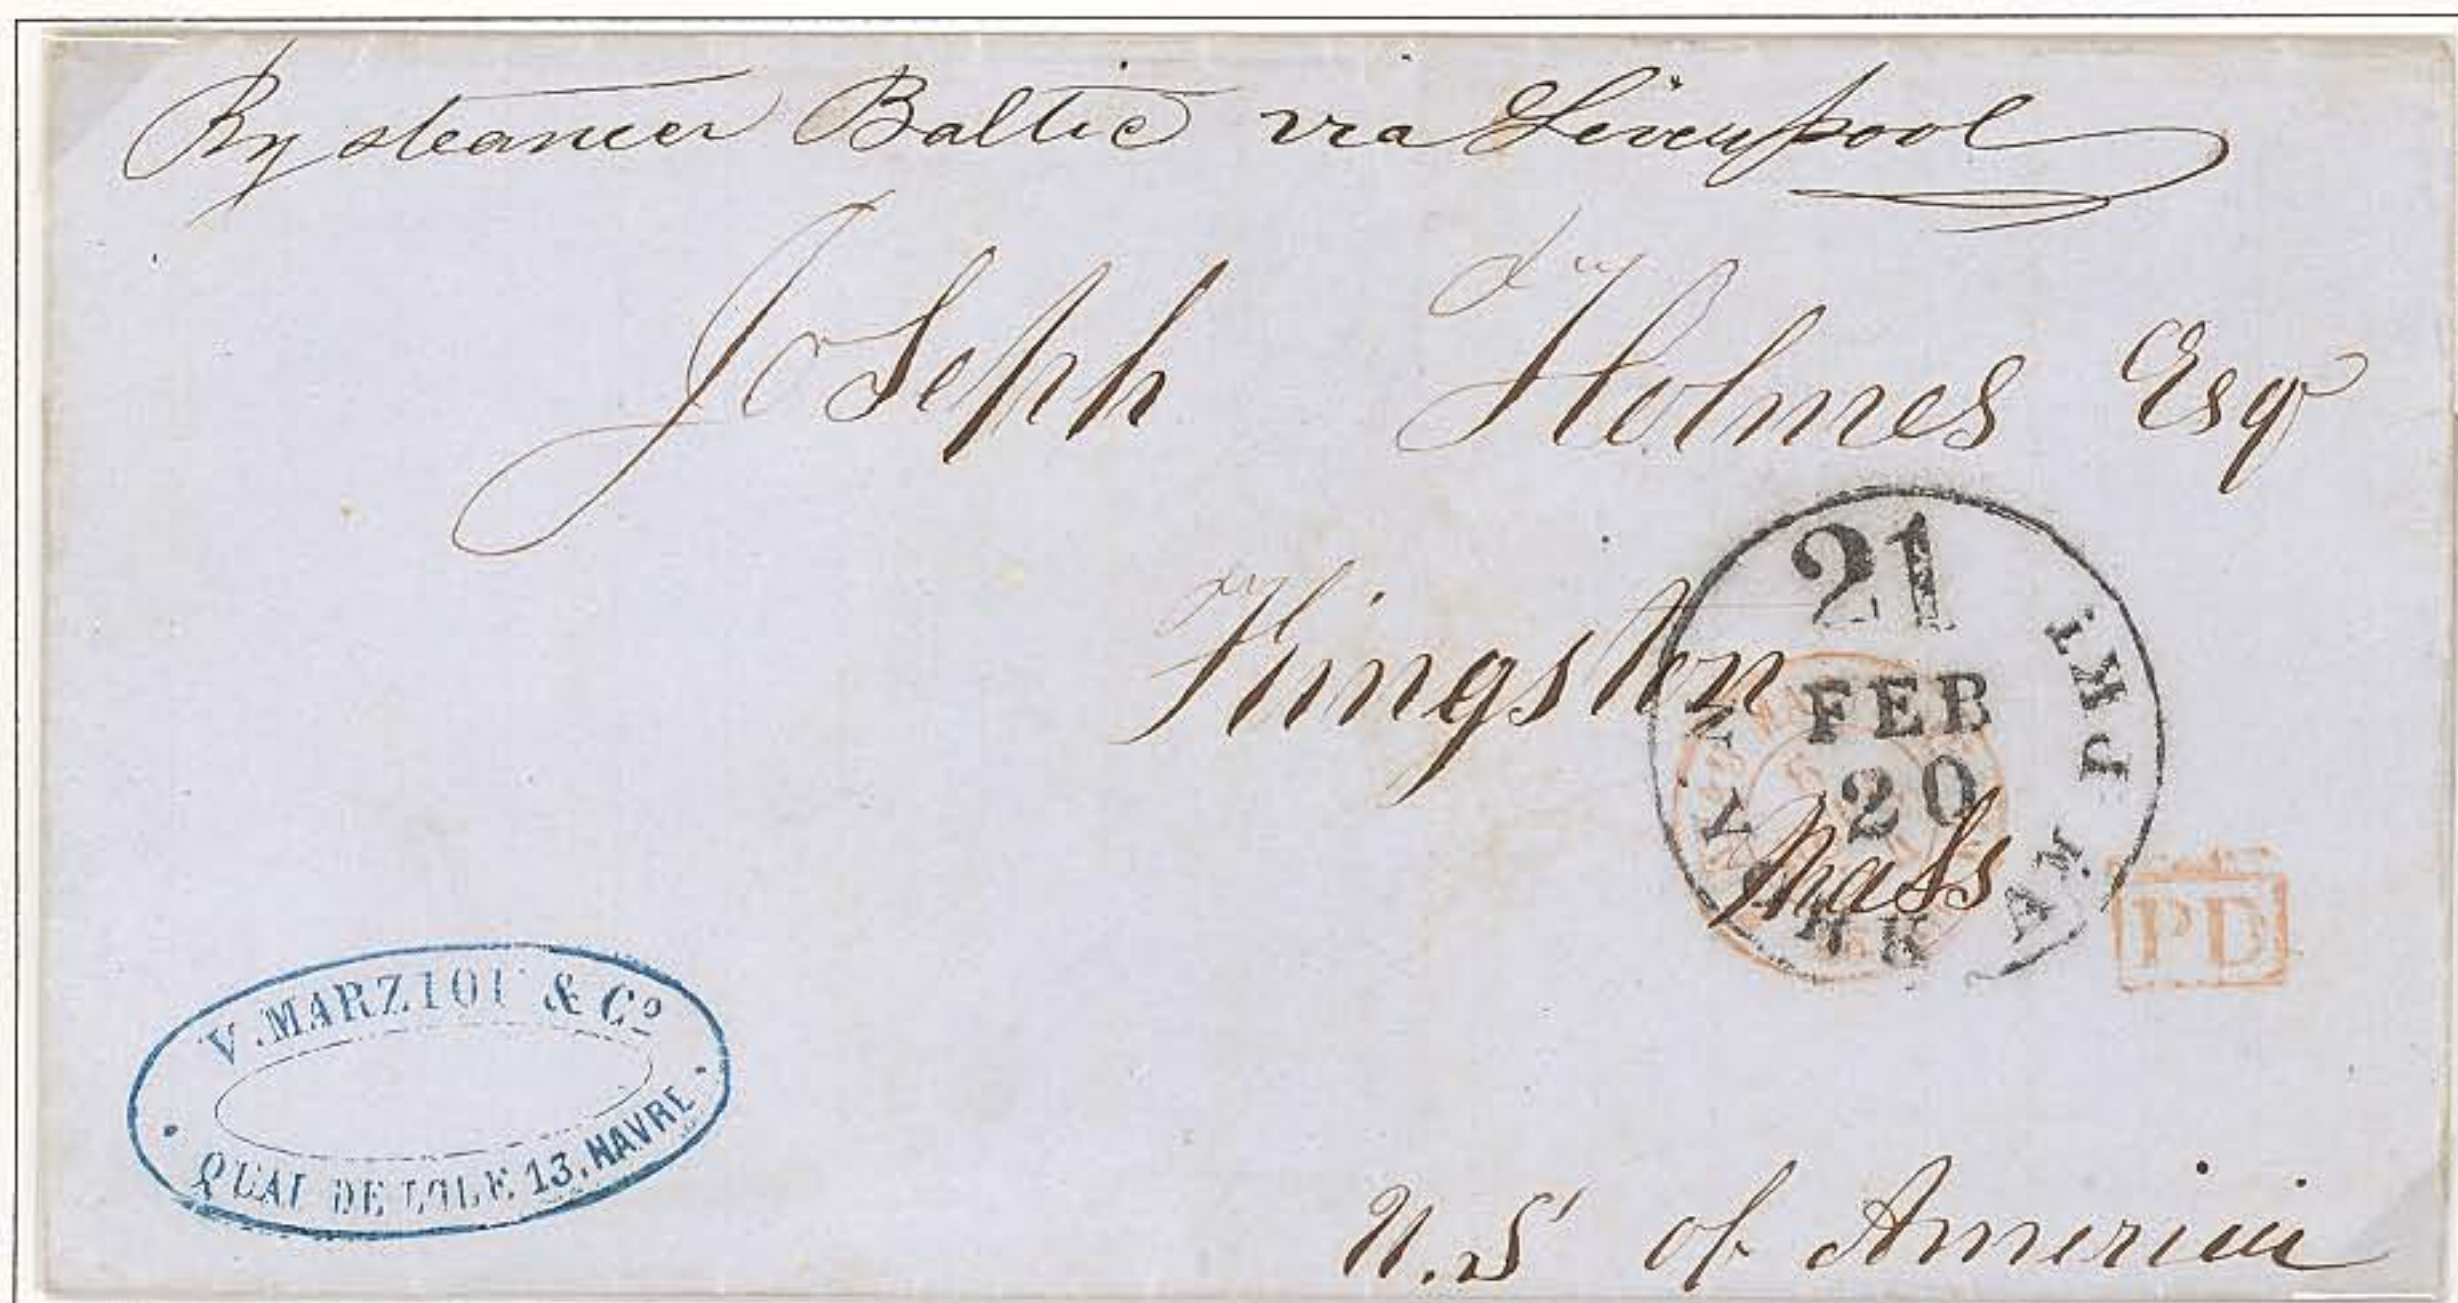 By steamer Baltic via Liverpool
Joseph Holmes Esqr
Kingston
Mass
U.S. of America
21
FEB
20
N. YORK AM PKT.
PD
V. MARZIOU & Co
QUAI DE L'ILE 13. HAVRE